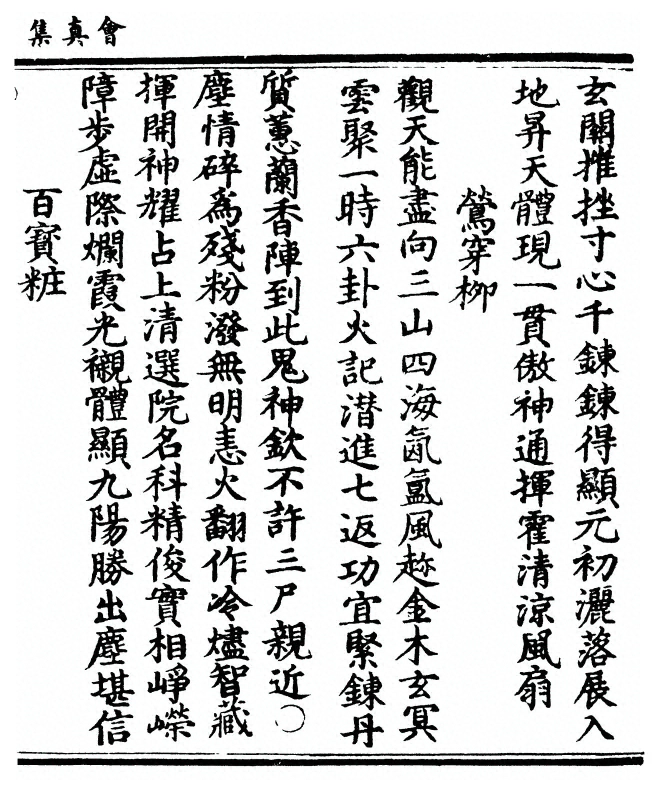 會真集
玄關摧挫寸心千鍊鍊得顯元初灑落展入
地昇天體現一貫傲神通揮霍清涼風扇
鶯穿柳
觀天能盡向三山四海氤氳風趂金木玄冥
雲聚一時六卦火記潜進七返功宜緊鍊丹
質蕙蘭香陣到此鬼神欽不許三尸親近〇
塵情碎為殘粉潑無明恚火翻作冷燼智藏
揮開神耀占上清選院名科精俊實相崢嶸
障步虛際爛霞光襯體顯九陽勝出塵堪信
百寳粧